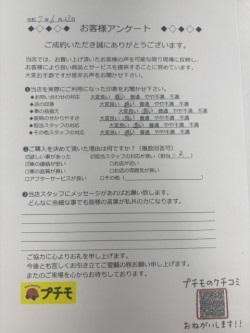 ◆◇◆◇◆ お客様アンケート ◆◇◆◇◆
ご成約いただき誠にありがとうございます。
当店では、お買い上げ頂いたお客様の声を可能な限り現場に反映し、
お客様により良い商品とサービスを提供することに努めています。
大変お手数ですが是非お声をお聞かせ下さい。
❶当店を実際にご利用になった印象をお聞かせ下さい。
◆お問い合わせの対応 大変良い 良い 普通 やや不満 不満
◆店の印象 大変良い 良い 普通 やや不満 不満
◆車の品揃え 大変良い 良い 普通 やや不満 不満
◆車の価格 大変良い 良い 普通 やや不満 不満
◆担当スタッフの対応 大変良い 良い 普通 やや不満 不満
◆その他スタッフの対応 大変良い 良い 普通 やや不満 不満
❷ご購入を決めて頂いた理由は何ですか？（複数回答可）
□欲しい車があった □担当スタッフの対応が良い（担当
□価格に満足 □お店の信頼度
□車の品質が良い □お店の雰囲気が良い
□アフターサービスが良い □その他（ ）
❸当店スタッフにメッセージがあればお願い致します。
どんなに些細なことでもお客様の言葉が私共の力になります。
ご協力に心よりお礼を申し上げます。
今後とも宜しくお引き立てご愛顧の程お願い申し上げます。
またのご来場を心からお待ちしております。
プチモ
プチモのクチコミ
おねがいします!!